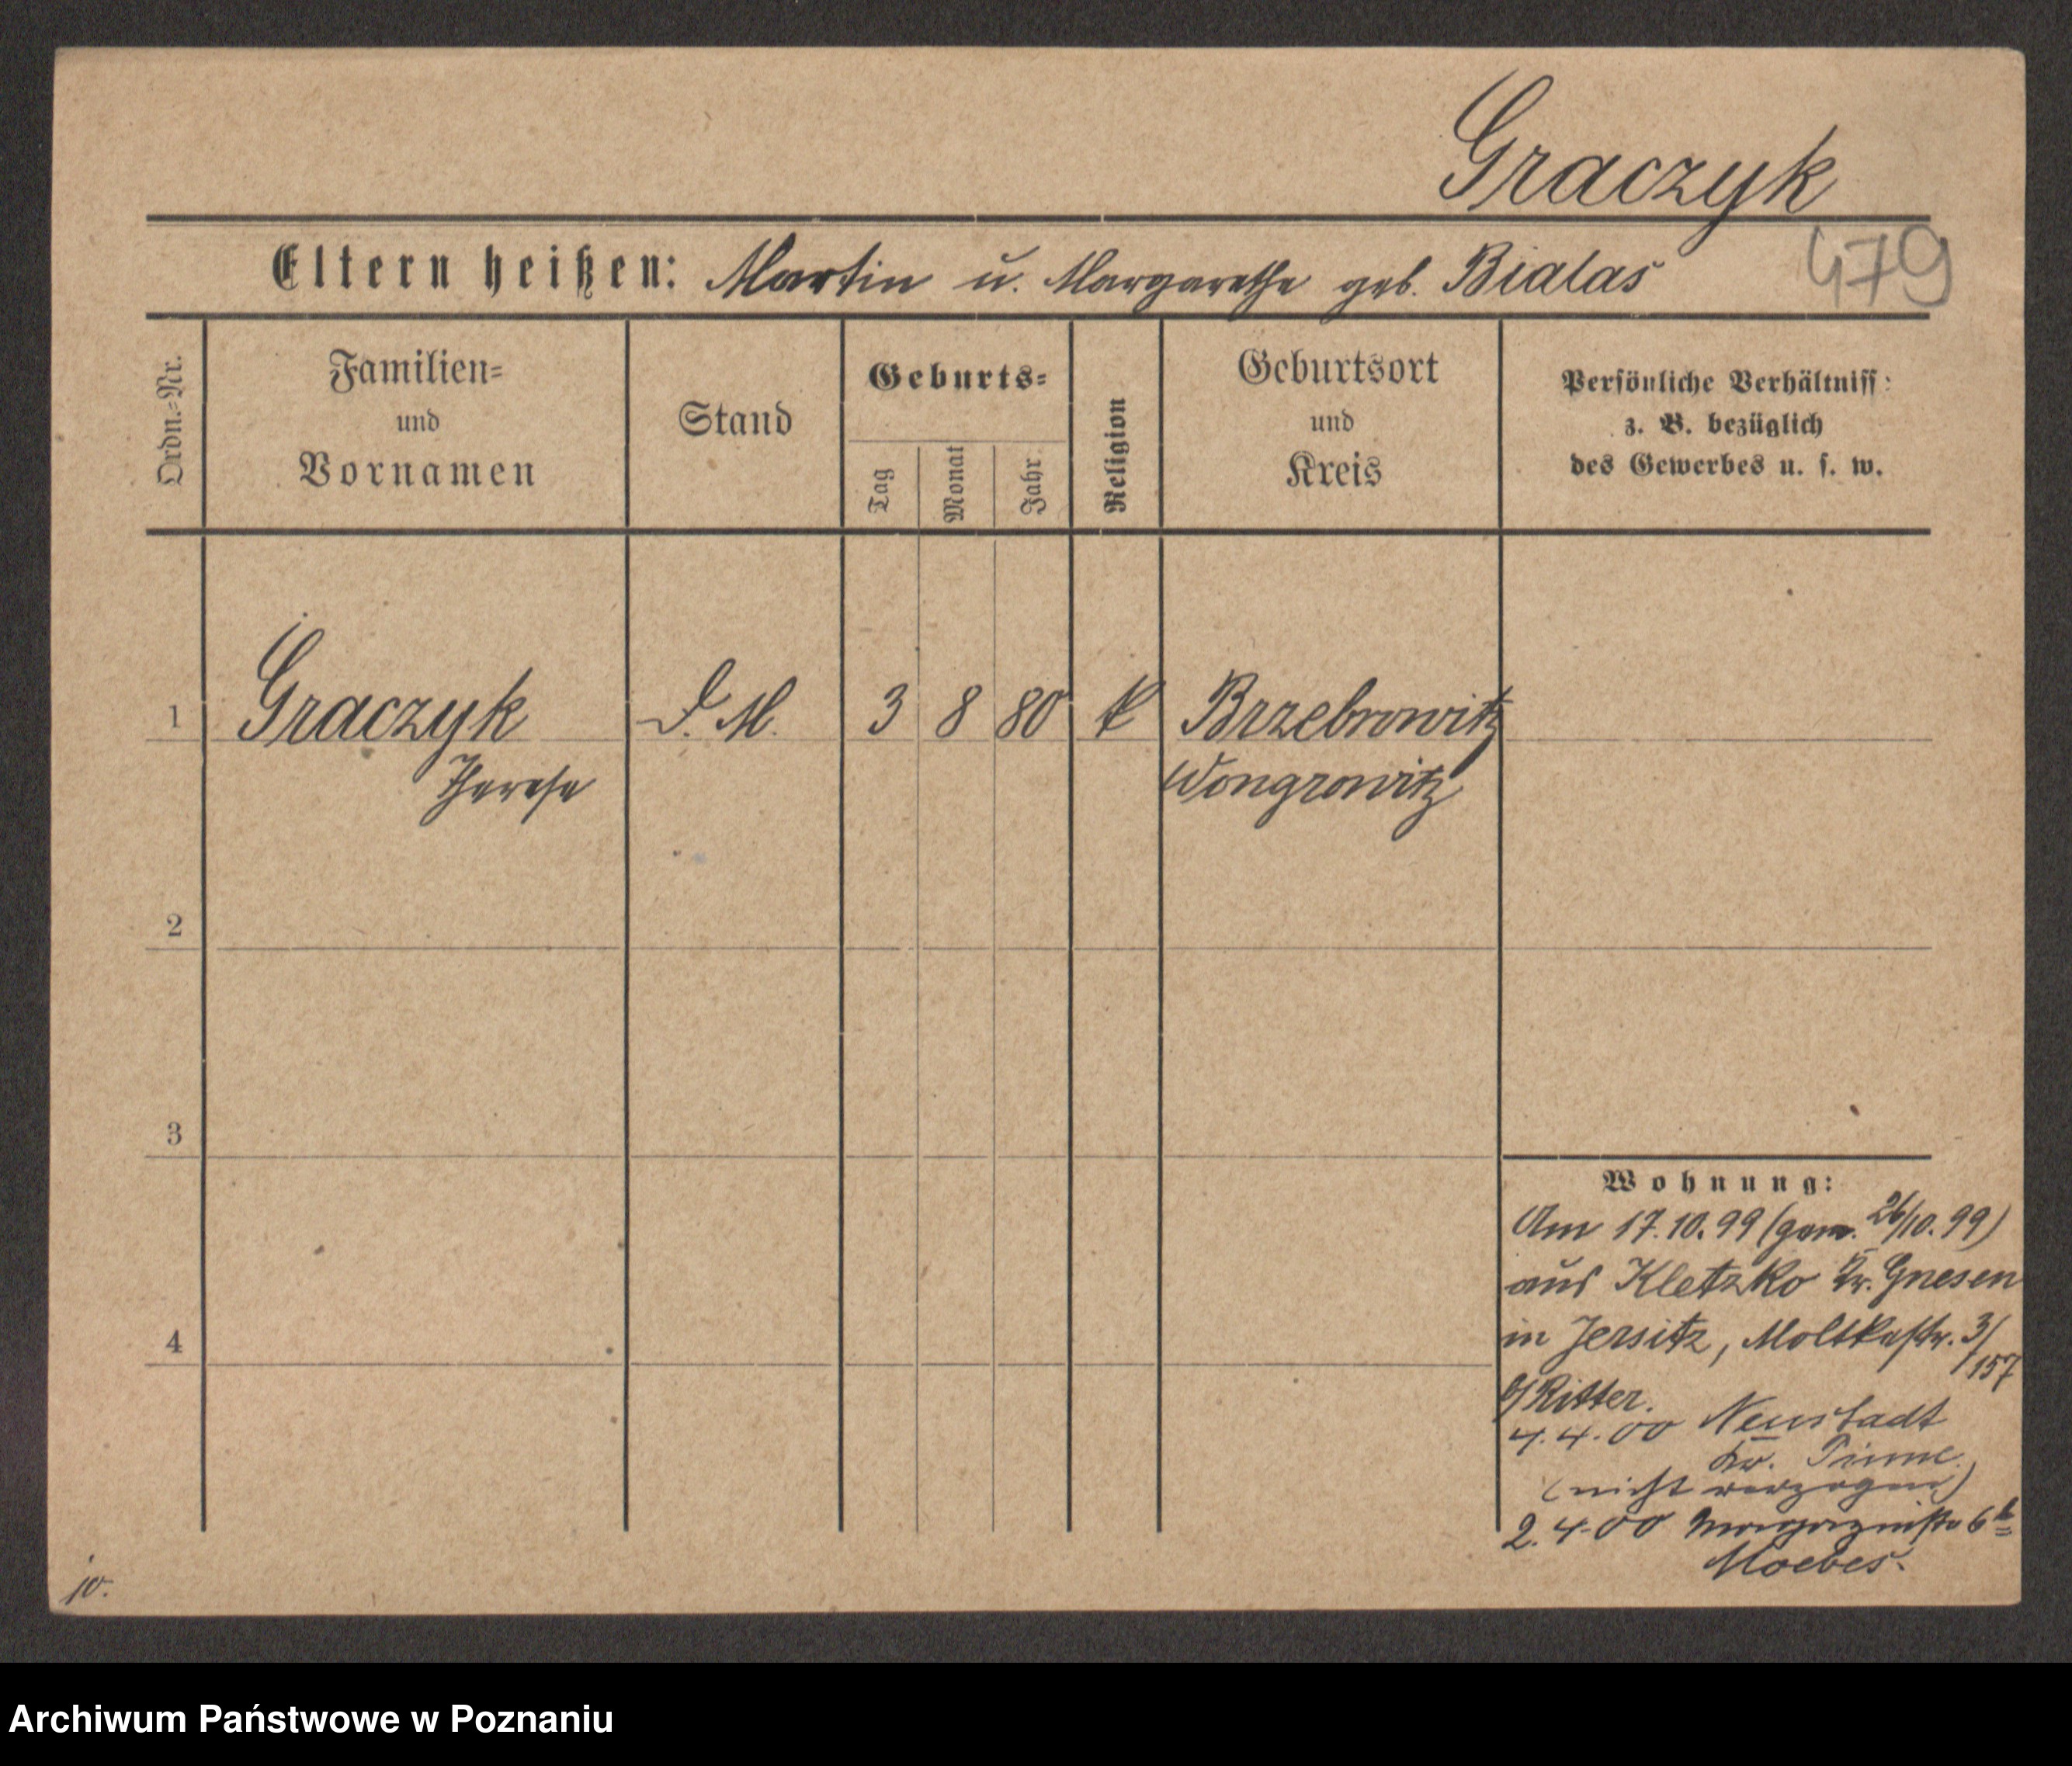 Graczyk
Eltern heißen: Martin u. Margarethe geb. Bialas
479
Ordn.=Nr.
Familien=
und
Vornamen
Stand
Geburts=
Tag
Monat
Jahr
Religion
Geburtsort
und
Kreis
Persönliche Verhältniss:
z. B. bezüglich
des Gewerbes u. s. w.
1 Graczyk D. M. 3 8 80 k Brzebrowitz
Therese Wongrowitz
2
3
4
Wohnung:
Am 17.10.99 (gem. 26/10.99)
aus Kletzko Kr. Gnesen
in Jersitz, Moltkestr. 3/
157
b/Ritter.
4.4.00 Neustadt
Kr. Pinne
(nicht verzogen)
2.4.00 6b
Moebes.
10.
Archiwum Państwowe w Poznaniu